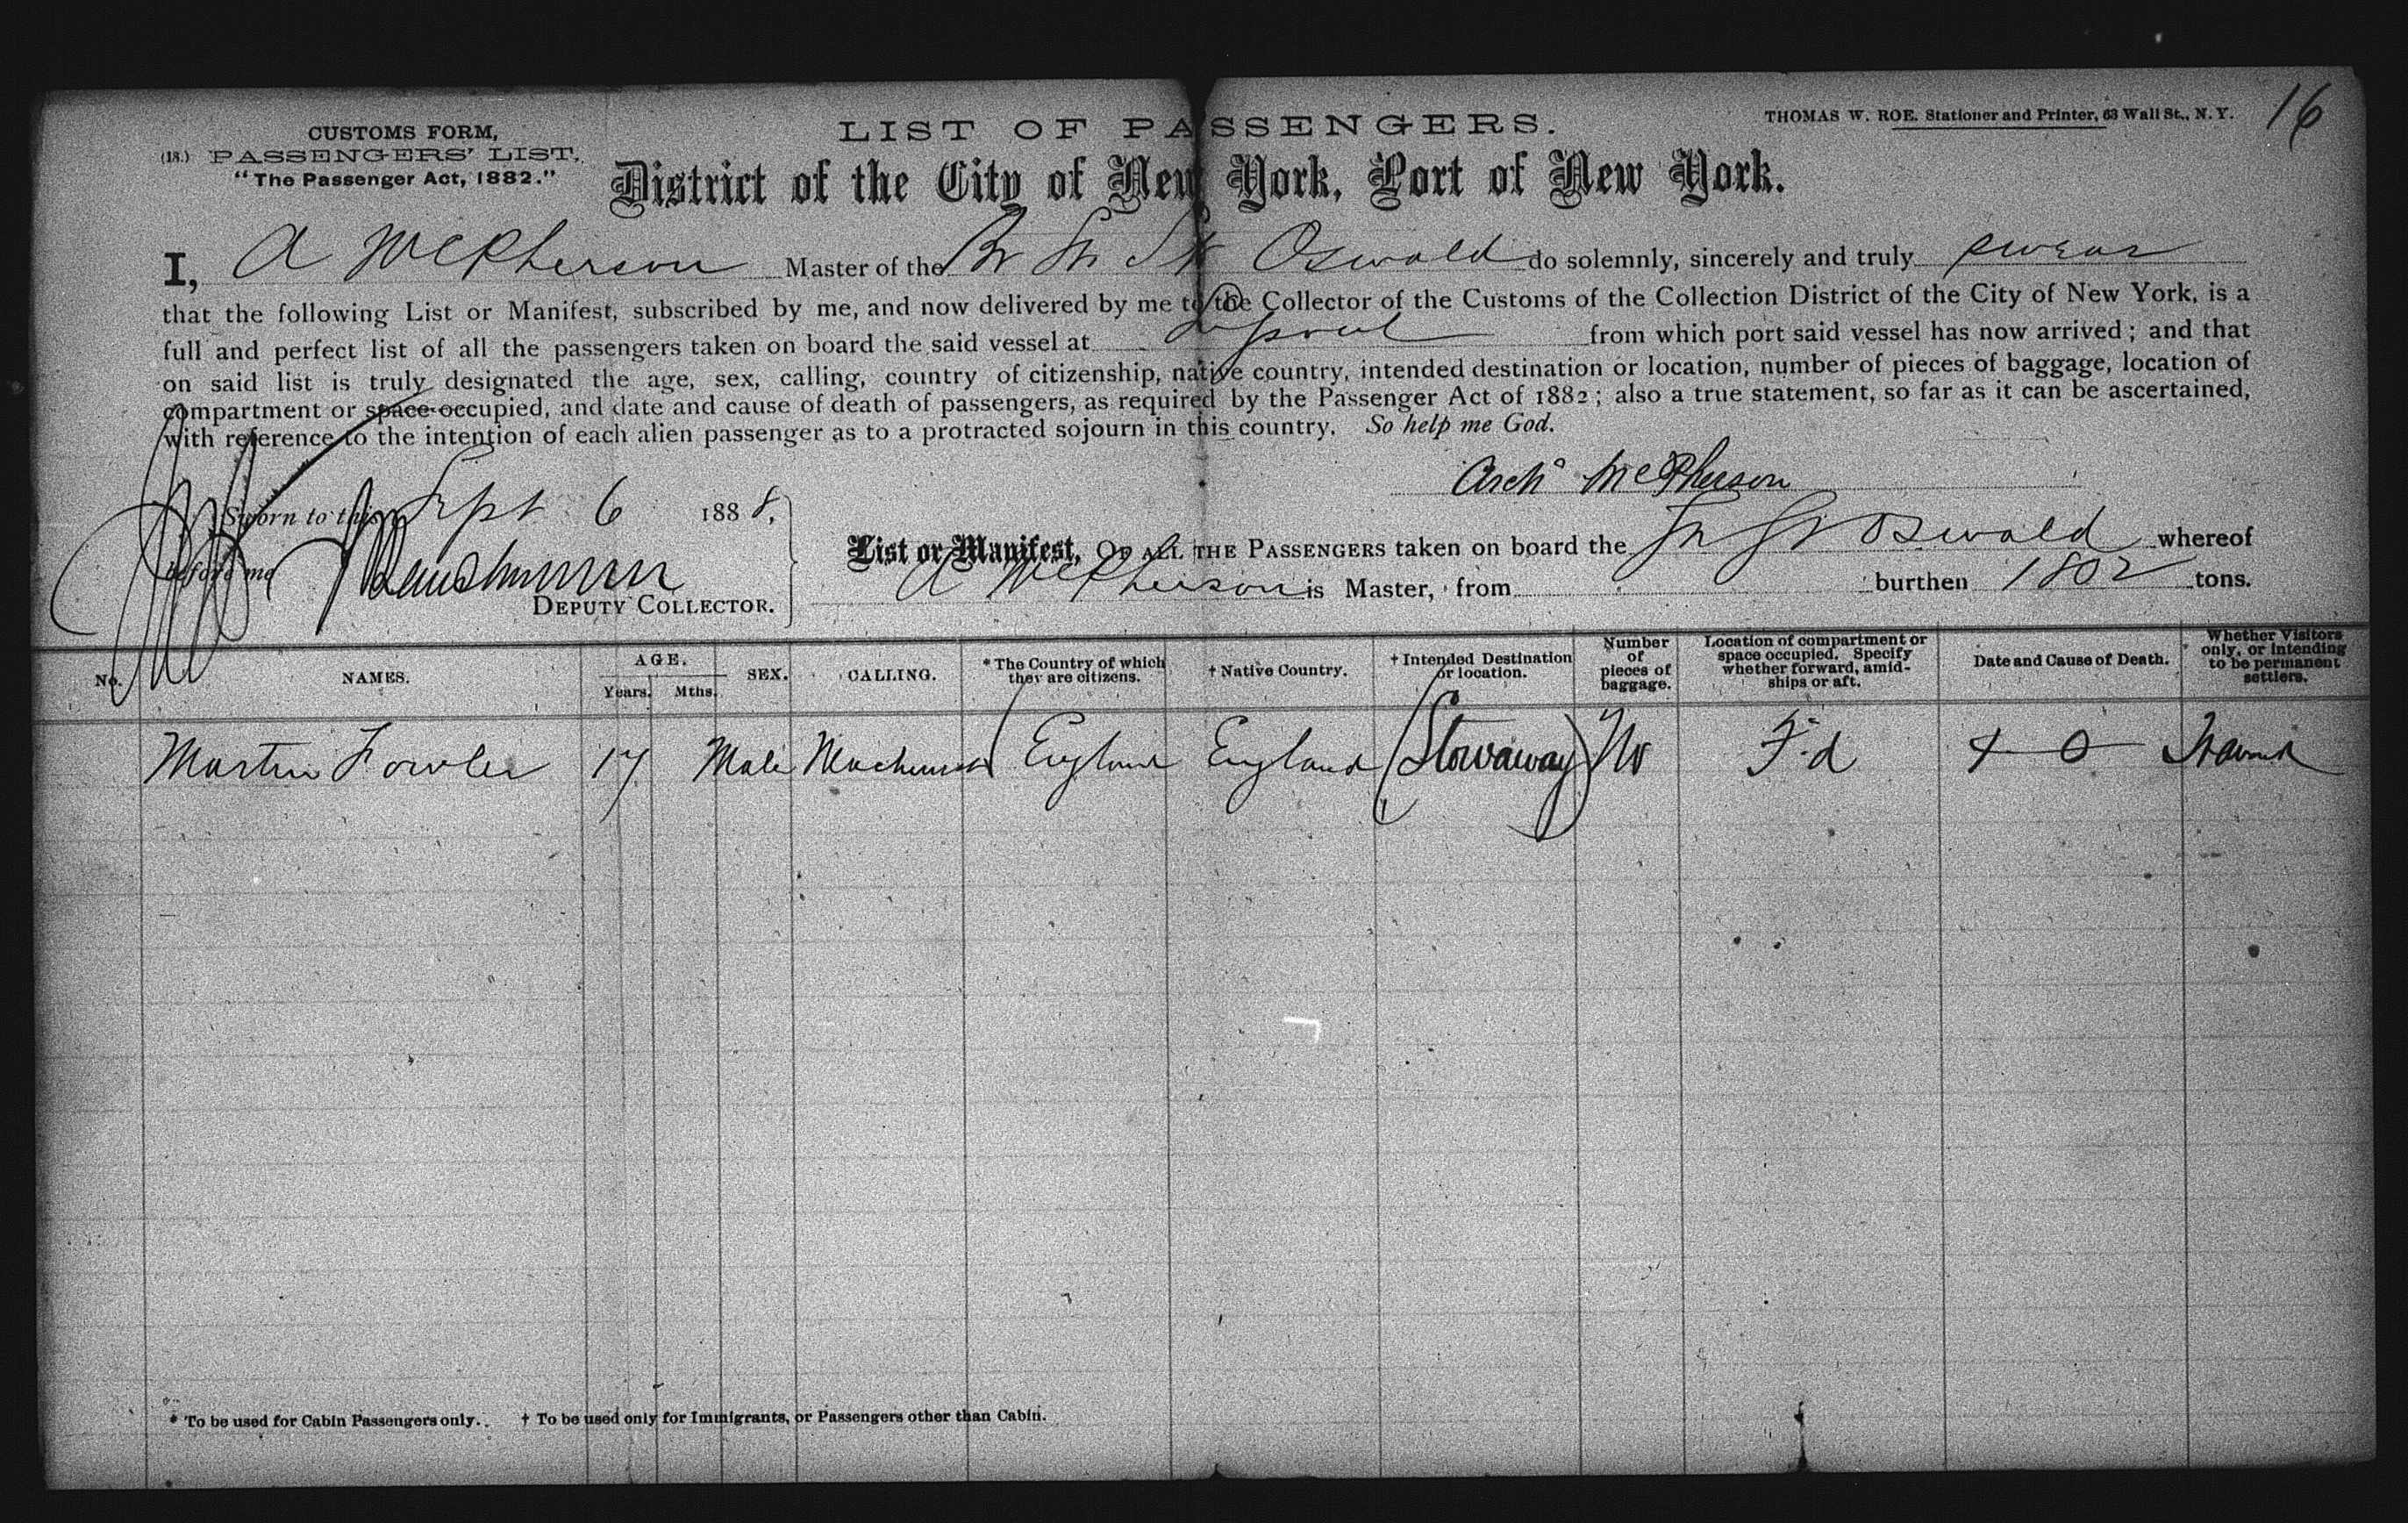 16
CUSTOMS FORM,
(18.) PASSENGERS' LIST,
"The Passenger Act, 1882."
LIST OF PASSENGERS.
THOMAS W. ROE. Stationer and Printer, 63 Wall St., N. Y.
District of the City of New York, Port of New York.
I, A McPherson Master of the Br Oswald do solemnly, sincerely and truly swear
that the following List or Manifest, subscribed by me, and now delivered by me to the Collector of the Customs of the Collection District of the City of New York, is a
full and perfect list of all the passengers taken on board the said vessel at from which port said vessel has now arrived; and that
on said list is truly designated the age, sex, calling, country of citizenship, native country, intended destination or location, number of pieces of baggage, location of
compartment or space occupied, and date and cause of death of passengers, as required by the Passenger Act of 1882; also a true statement, so far as it can be ascertained,
with reference to the intention of each alien passenger as to a protracted sojourn in this country. So help me God.
Archd McPherson
Sworn to this Sept 6 1888,
before me
DEPUTY COLLECTOR.
List or Manifest, OF ALL THE PASSENGERS taken on board the Oswald whereof
A McPherson is Master, from burthen 1802 tons.
No. NAMES. AGE. Years. Mths. SEX. CALLING. * The Country of which they are citizens. † Native Country. † Intended Destination or location. Number of pieces of baggage. Location of compartment or space occupied. Specify whether forward, amidships or aft. Date and Cause of Death. Whether Visitors only, or intending to be permanent settlers.
Martin Fowler 17 Male England England (Stowaway) No F.d
* To be used for Cabin Passengers only. † To be used only for Immigrants, or Passengers other than Cabin.